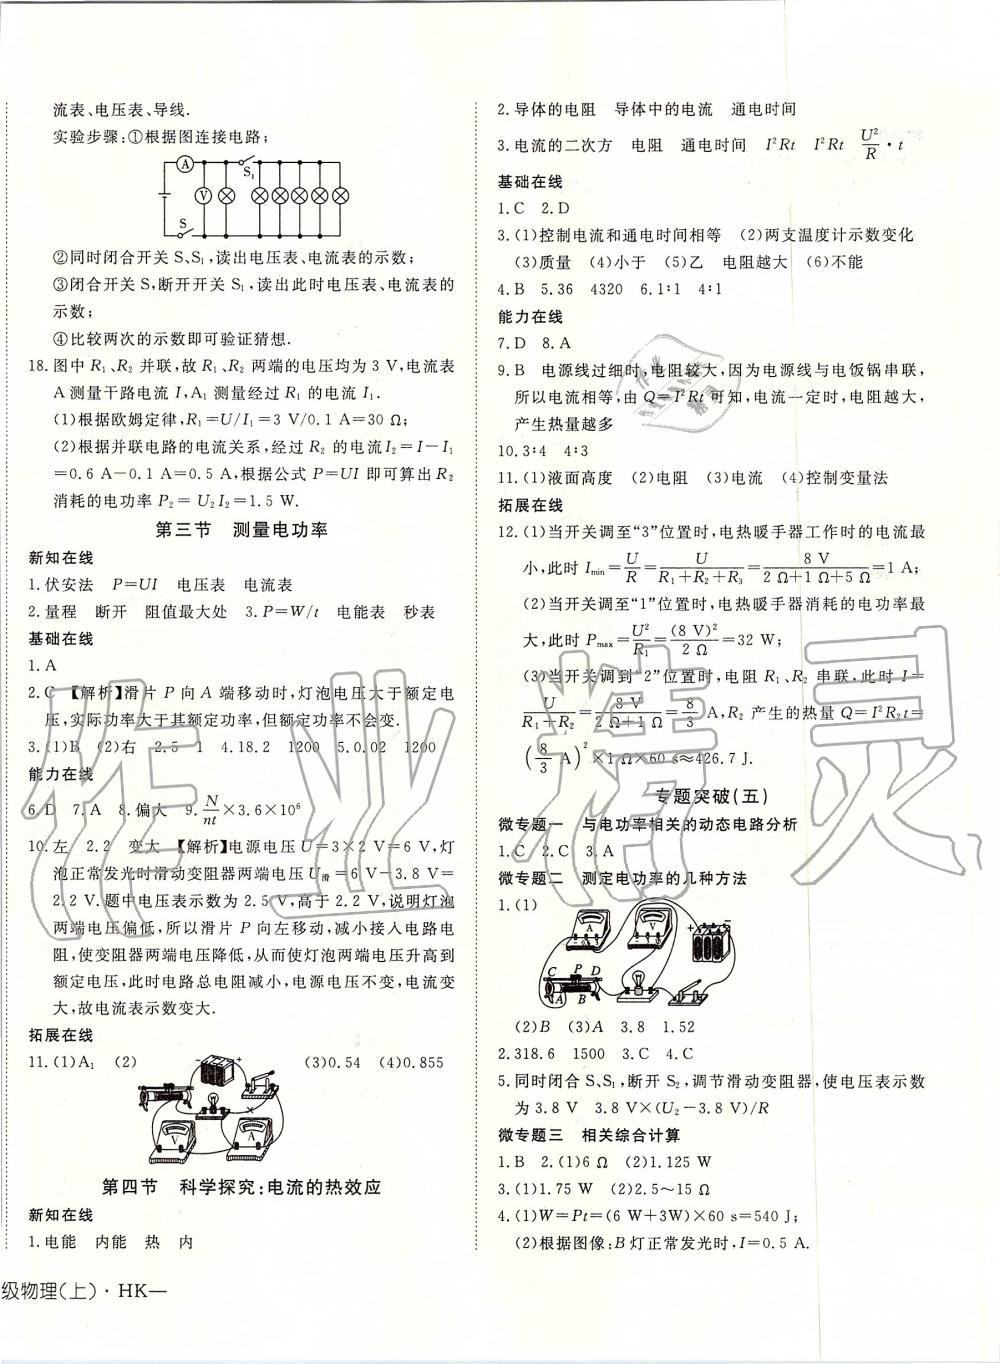 流表、电压表、导线.
实验步骤:①根据图连接电路;
A
S₁
V
S
②同时闭合开关 S、S₁,读出电压表、电流表的示数;
③闭合开关 S,断开开关 S₁,读出此时电压表、电流表的
示数;
④比较两次的示数即可验证猜想.
18.图中 R₁、R₂ 并联,故 R₁、R₂ 两端的电压均为 3 V,电流表
A 测量干路电流 I,A₁ 测量经过 R₁ 的电流 I₁.
(1)根据欧姆定律,R₁=U/I₁=3 V/0.1 A=30 Ω;
(2)根据并联电路的电流关系,经过 R₂ 的电流I₂=I-I₁
=0.6 A-0.1 A=0.5 A,根据公式 P=UI 即可算出 R₂
消耗的电功率 P₂= U₂I₂=1.5 W.
第三节 测量电功率
新知在线
1.伏安法 P=UI 电压表 电流表
2.量程 断开 阻值最大处 3.P=W/t 电能表 秒表
基础在线
1.A
2.C 【解析】滑片 P 向 A 端移动时,灯泡电压大于额定电
压,实际功率大于其额定功率,但额定功率不会变.
3.(1)B (2)右 2.5 1 4.18.2 1200 5.0.02 1200
能力在线
6.D 7.A 8.偏大 9.N/nt×3.6×10⁶
10.左 2.2 变大 【解析】电源电压U=3×2 V=6 V,灯
泡正常发光时滑动变阻器两端电压U滑=6 V-3.8 V=
2.2 V.题中电压表示数为 2.5 V,高于 2.2 V,说明灯泡
两端电压偏低,所以滑片 P 向左移动,减小接入电路电
阻,使变阻器两端电压降低,从而使灯泡两端电压升高到
额定电压,此时电路总电阻减小,电源电压不变,电流变
大,故电流表示数变大.
拓展在线
11.(1)A₁ (2) (3)0.54 (4)0.855
V
A
第四节 科学探究:电流的热效应
新知在线
1.电能 内能 热 内
级物理(上)·HK一
2.导体的电阻 导体中的电流 通电时间
3.电流的二次方 电阻 通电时间 I²Rt I²Rt U²/R·t
基础在线
1.C 2.D
3.(1)控制电流和通电时间相等 (2)两支温度计示数变化
(3)质量 (4)小于 (5)乙 电阻越大 (6)不能
4.B 5.36 4320 6.1:1 4:1
能力在线
7.D 8.A
9.B 电源线过细时,电阻较大,因为电源线与电饭锅串联,
所以电流相等,由 Q=I²Rt 可知,电流一定时,电阻越大,
产生热量越多
10.3:4 4:3
11.(1)液面高度 (2)电阻 (3)电流 (4)控制变量法
拓展在线
12.(1)当开关调至“3”位置时,电热暖手器工作时的电流最
小,此时 Imin=U/R=U/(R₁+R₂+R₃)=8 V/(2 Ω+1 Ω+5 Ω)=1 A;
(2)当开关调至“1”位置时,电热暖手器消耗的电功率最
大,此时 Pmax=U²/R₁=(8 V)²/2 Ω=32 W;
(3)当开关调到“2”位置时,电阻 R₁、R₂ 串联,此时 I=
U/(R₁+R₂)=8 V/(2 Ω+1 Ω)=8/3 A,R₂ 产生的热量 Q=I²R₂t=
(8/3 A)²×1 Ω×60 s≈426.7 J.
专题突破(五)
微专题一 与电功率相关的动态电路分析
1.C 2.C 3.A
微专题二 测定电功率的几种方法
1.(1)
A
V
C P D
A B
(2)B (3)A 3.8 1.52
2.318.6 1500 3.C 4.C
5.同时闭合 S、S₁,断开 S₂,调节滑动变阻器,使电压表示数
为 3.8 V 3.8 V×(U₂-3.8 V)/R
微专题三 相关综合计算
1.B 2.(1)6 Ω (2)1.125 W
3.(1)1.75 W (2)2.5~15 Ω
4.(1)W=Pt=(6 W+3W)×60 s=540 J;
(2)根据图像:B 灯正常发光时,I=0.5 A.
作业精灵